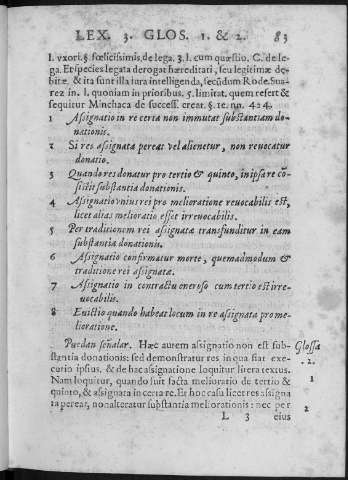 LEX. 3. GLOS. 1. & 2. 83
l. vxori. §. fœlicissimis, de lega. 3. l. cum quæstio. C. de le-
ga. Et species legata derogat hæreditati, seu legitimæ de-
bitæ, & ita sunt illa iura intelligenda, secũdum Rode. Sua-
rez in. l. quoniam in prioribus. 5. limitat. quem refert &
sequitur Minchaca de success. creat. §. 10. nn. 424.
1 Assignatio in re certa non immutat substantiam do-
nationis.
2 Si res assignata pereat vel alienetur, non reuocatur
donatio.
3 Quando res donatur pro tertio & quinto, in ipsa re cõ-
sistit substantia donationis.
4 Assignatio vnius rei pro melioratione reuocabilis est,
licet alias melioratio esset irreuocabilis.
5 Per traditionem rei assignatæ transfunditur in eam
substantia donationis.
6 Assignatio confirmatur morte, quemadmodum &
traditione rei assignatæ.
7 Assignatio in contractu oneroso cum tertio est irre-
uocabilis.
8 Euictio quando habeat locum in re assignata pro me-
lioratione.
Puedan señalar. Hæc autem assignatio non est sub- Glossa
stantia donationis: sed demonstratur res in qua fiat exe- 2.
cutio ipsius, & de hac assignatione loquitur litera textus.
Nam loquitur, quando fuit facta melioratio de tertio & 1
quinto, & assignata in certa re. Et hoc casu licet res assigna
ta pereat, non alteratur substantia meliorationis: nec per 2
L 3 eius